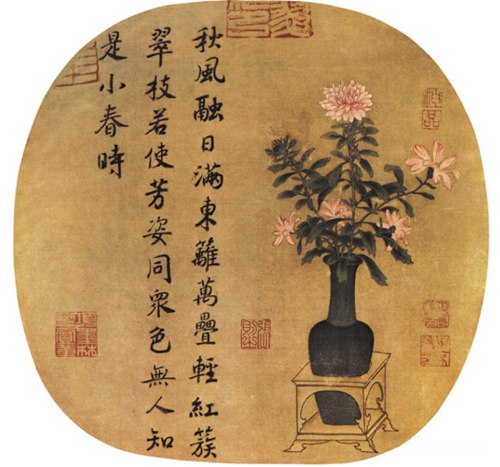 秋風融日滿東籬萬疊輕紅簇
翠枝若使芳姿同眾色無人知
是小春時